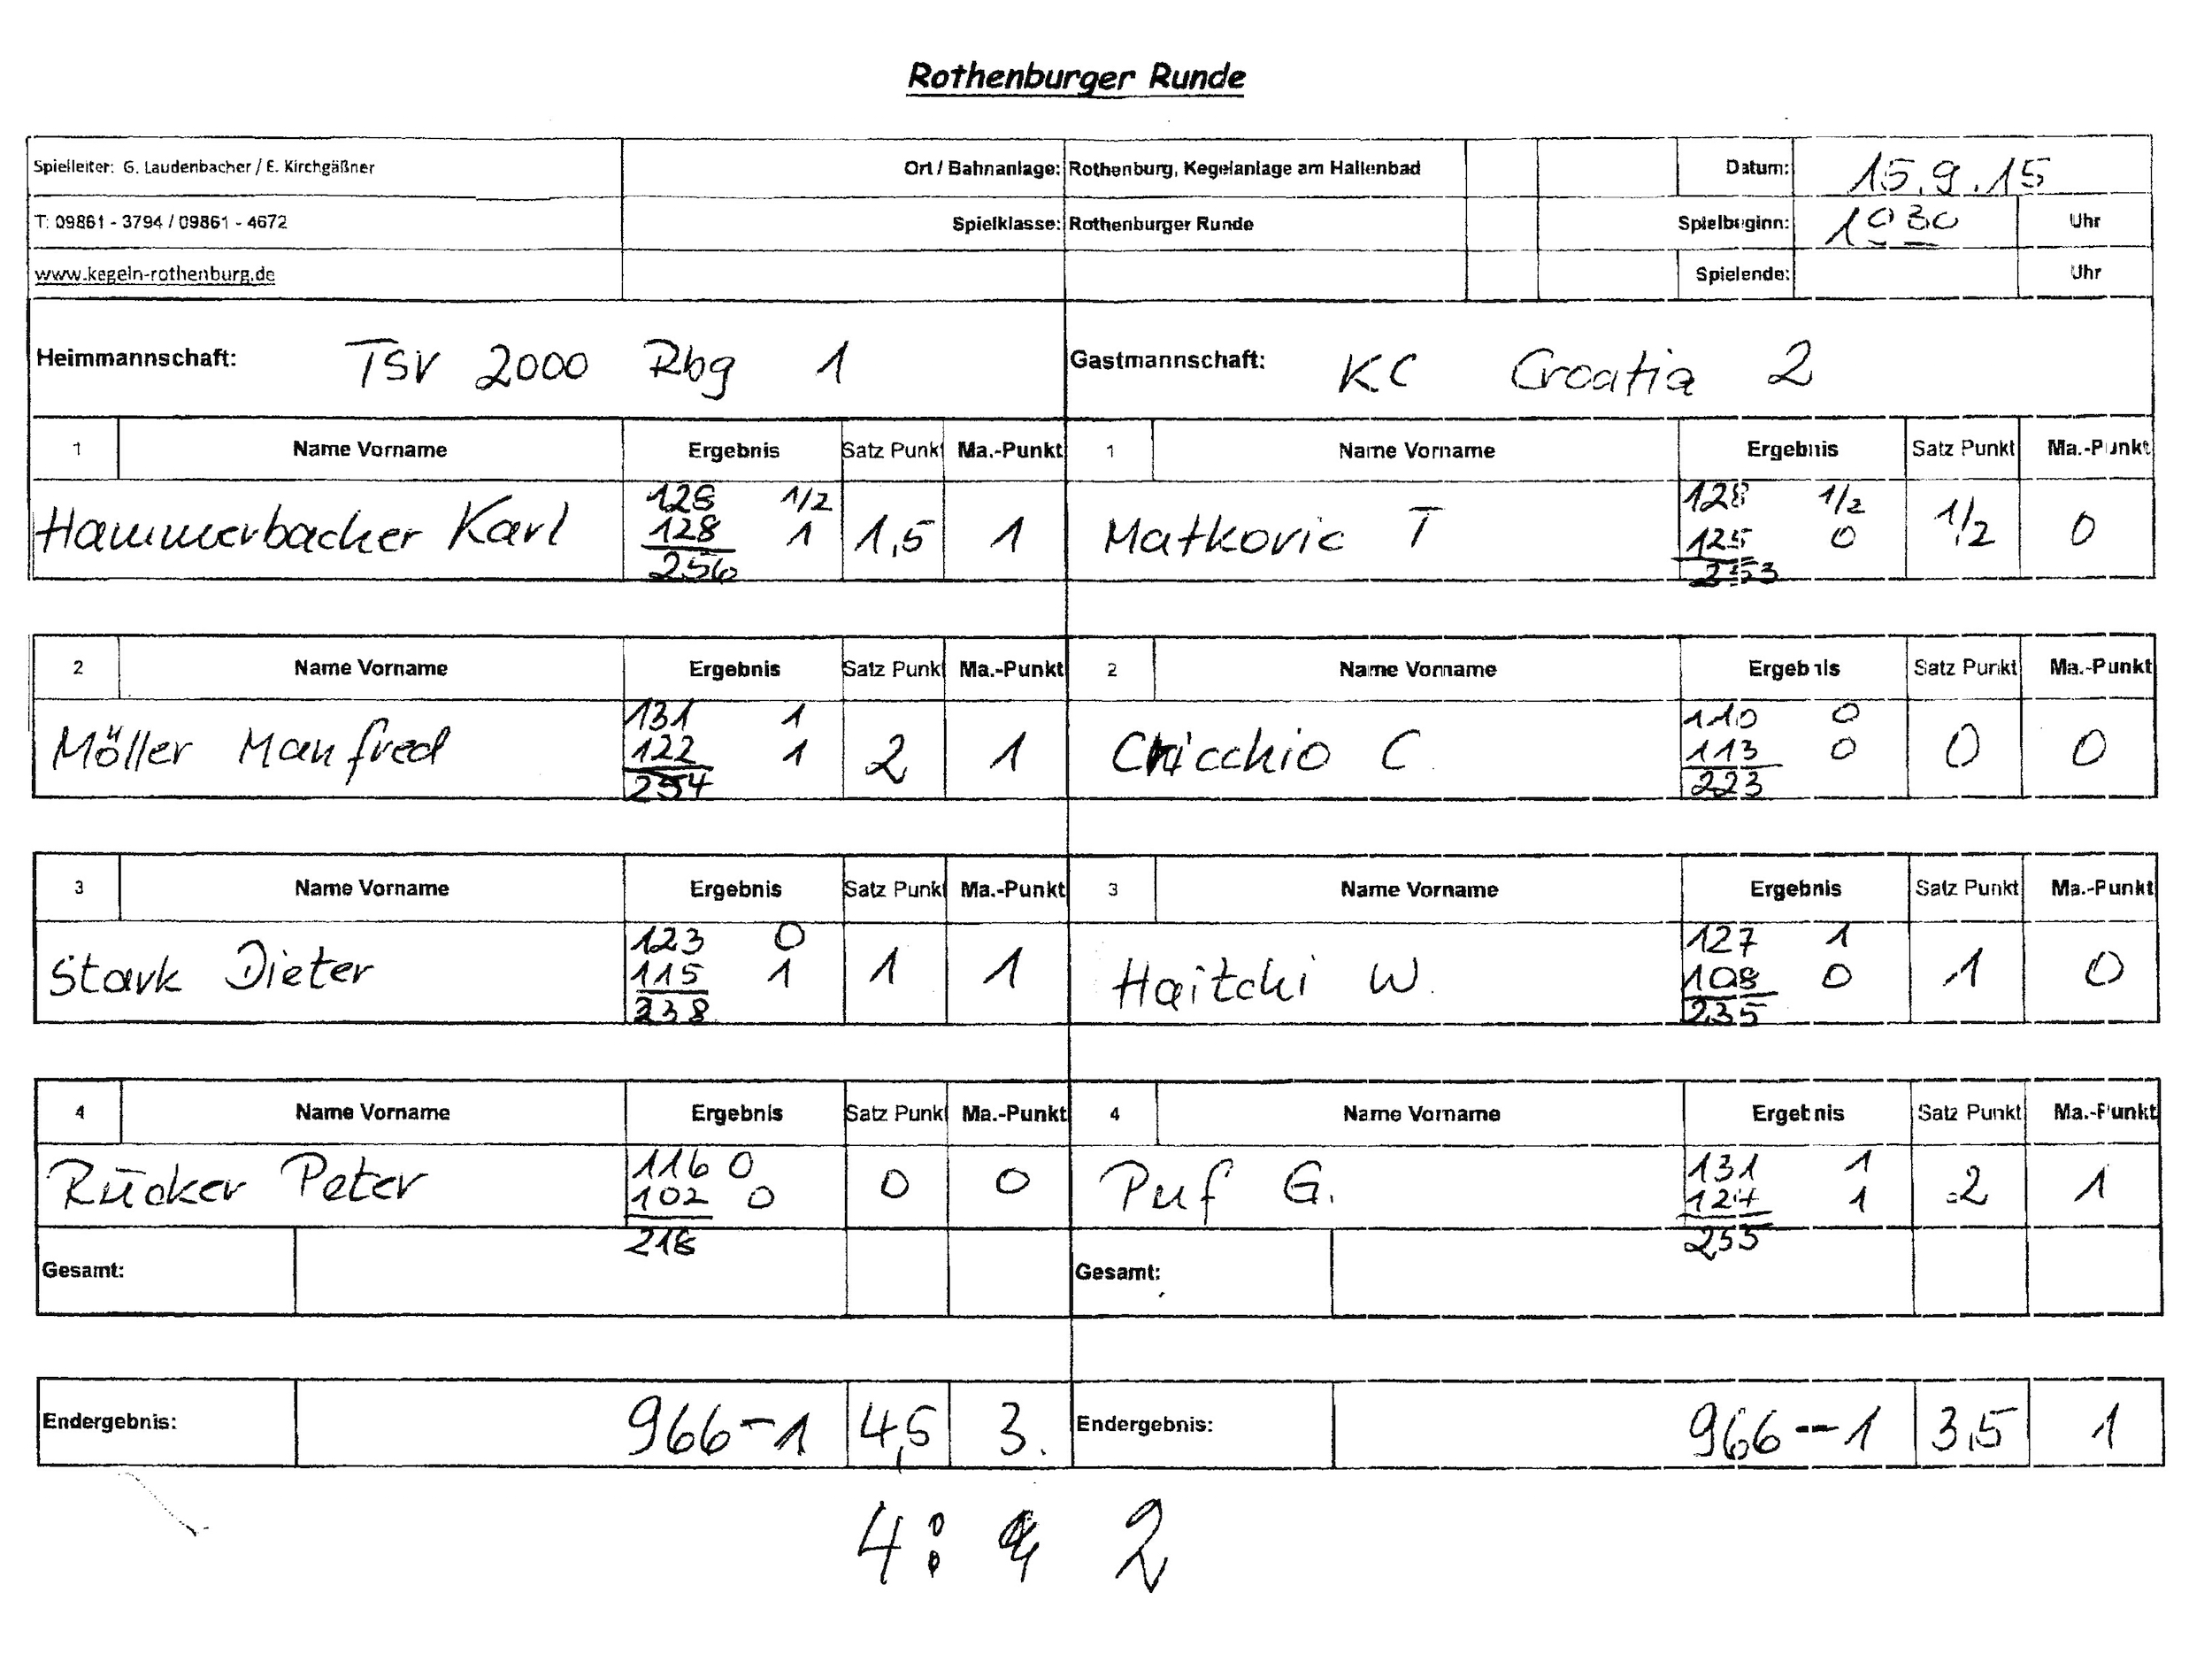 Rothenburger Runde
Spielleiter: G. Laudenbacher / E. Kirchgäßner Ort / Bahnanlage: Rothenburg, Kegelanlage am Hallenbad Datum: 15.9.15
T: 09861 - 3794 / 09861 - 4672 Spielklasse: Rothenburger Runde Spielbeginn: 1030 Uhr
www.kegeln-rothenburg.de Spielende: Uhr
Heimmannschaft: TSV 2000 Rbg 1 Gastmannschaft: KC Croatia 2
1 Name Vorname Ergebnis Satz Punkt Ma.-Punkt 1 Name Vorname Ergebnis Satz Punkt Ma.-Punkt
128 1/2 128 1/2
Hammerbacher Karl 128 1 1,5 1 Matkovic T 125 0 1/2 0
256 253
2 Name Vorname Ergebnis Satz Punkt Ma.-Punkt 2 Name Vorname Ergebnis Satz Punkt Ma.-Punkt
131 1 110 0
Möller Manfred 122 1 2 1 Chicchio C. 113 0 0 0
254 223
3 Name Vorname Ergebnis Satz Punkt Ma.-Punkt 3 Name Vorname Ergebnis Satz Punkt Ma.-Punkt
123 0 127 1
Stark Dieter 115 1 1 1 Haitchi W. 108 0 1 0
238 235
4 Name Vorname Ergebnis Satz Punkt Ma.-Punkt 4 Name Vorname Ergebnis Satz Punkt Ma.-Punkt
116 0 131 1
Rücker Peter 102 0 0 0 Puf G. 124 1 2 1
218 255
Gesamt: Gesamt:
Endergebnis: 966-1 4,5 3. Endergebnis: 966--1 3,5 1
4: 2